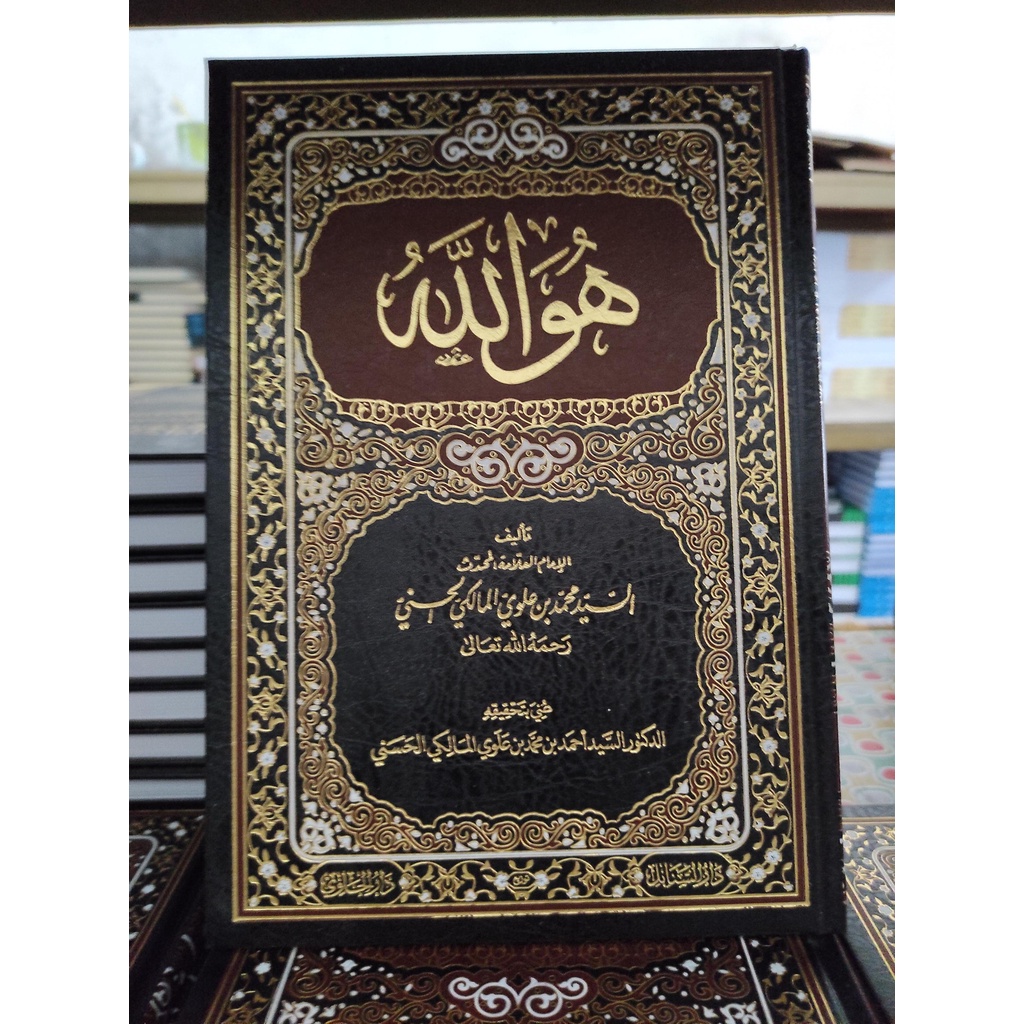 هُوَ اللَّهُ
تأليف
الإمام العلامة المحدث
السيد محمد بن علوي المالكي الحسني
رحمه الله تعالى
عني بتحقيقه
الدكتور السيد أحمد بن محمد بن علوي المالكي الحسني